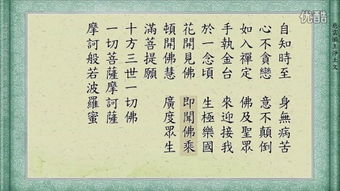 慈雲懺主淨土文
自知時至 身無病苦
心不貪戀 意不顛倒
如入禪定 佛及聖眾
手執金台 來迎接我
於一念頃 生極樂國
花開見佛 即聞佛乘
頓開佛慧 廣度眾生
滿菩提願
十方三世一切佛
一切菩薩摩訶薩
摩訶般若波羅蜜
优酷